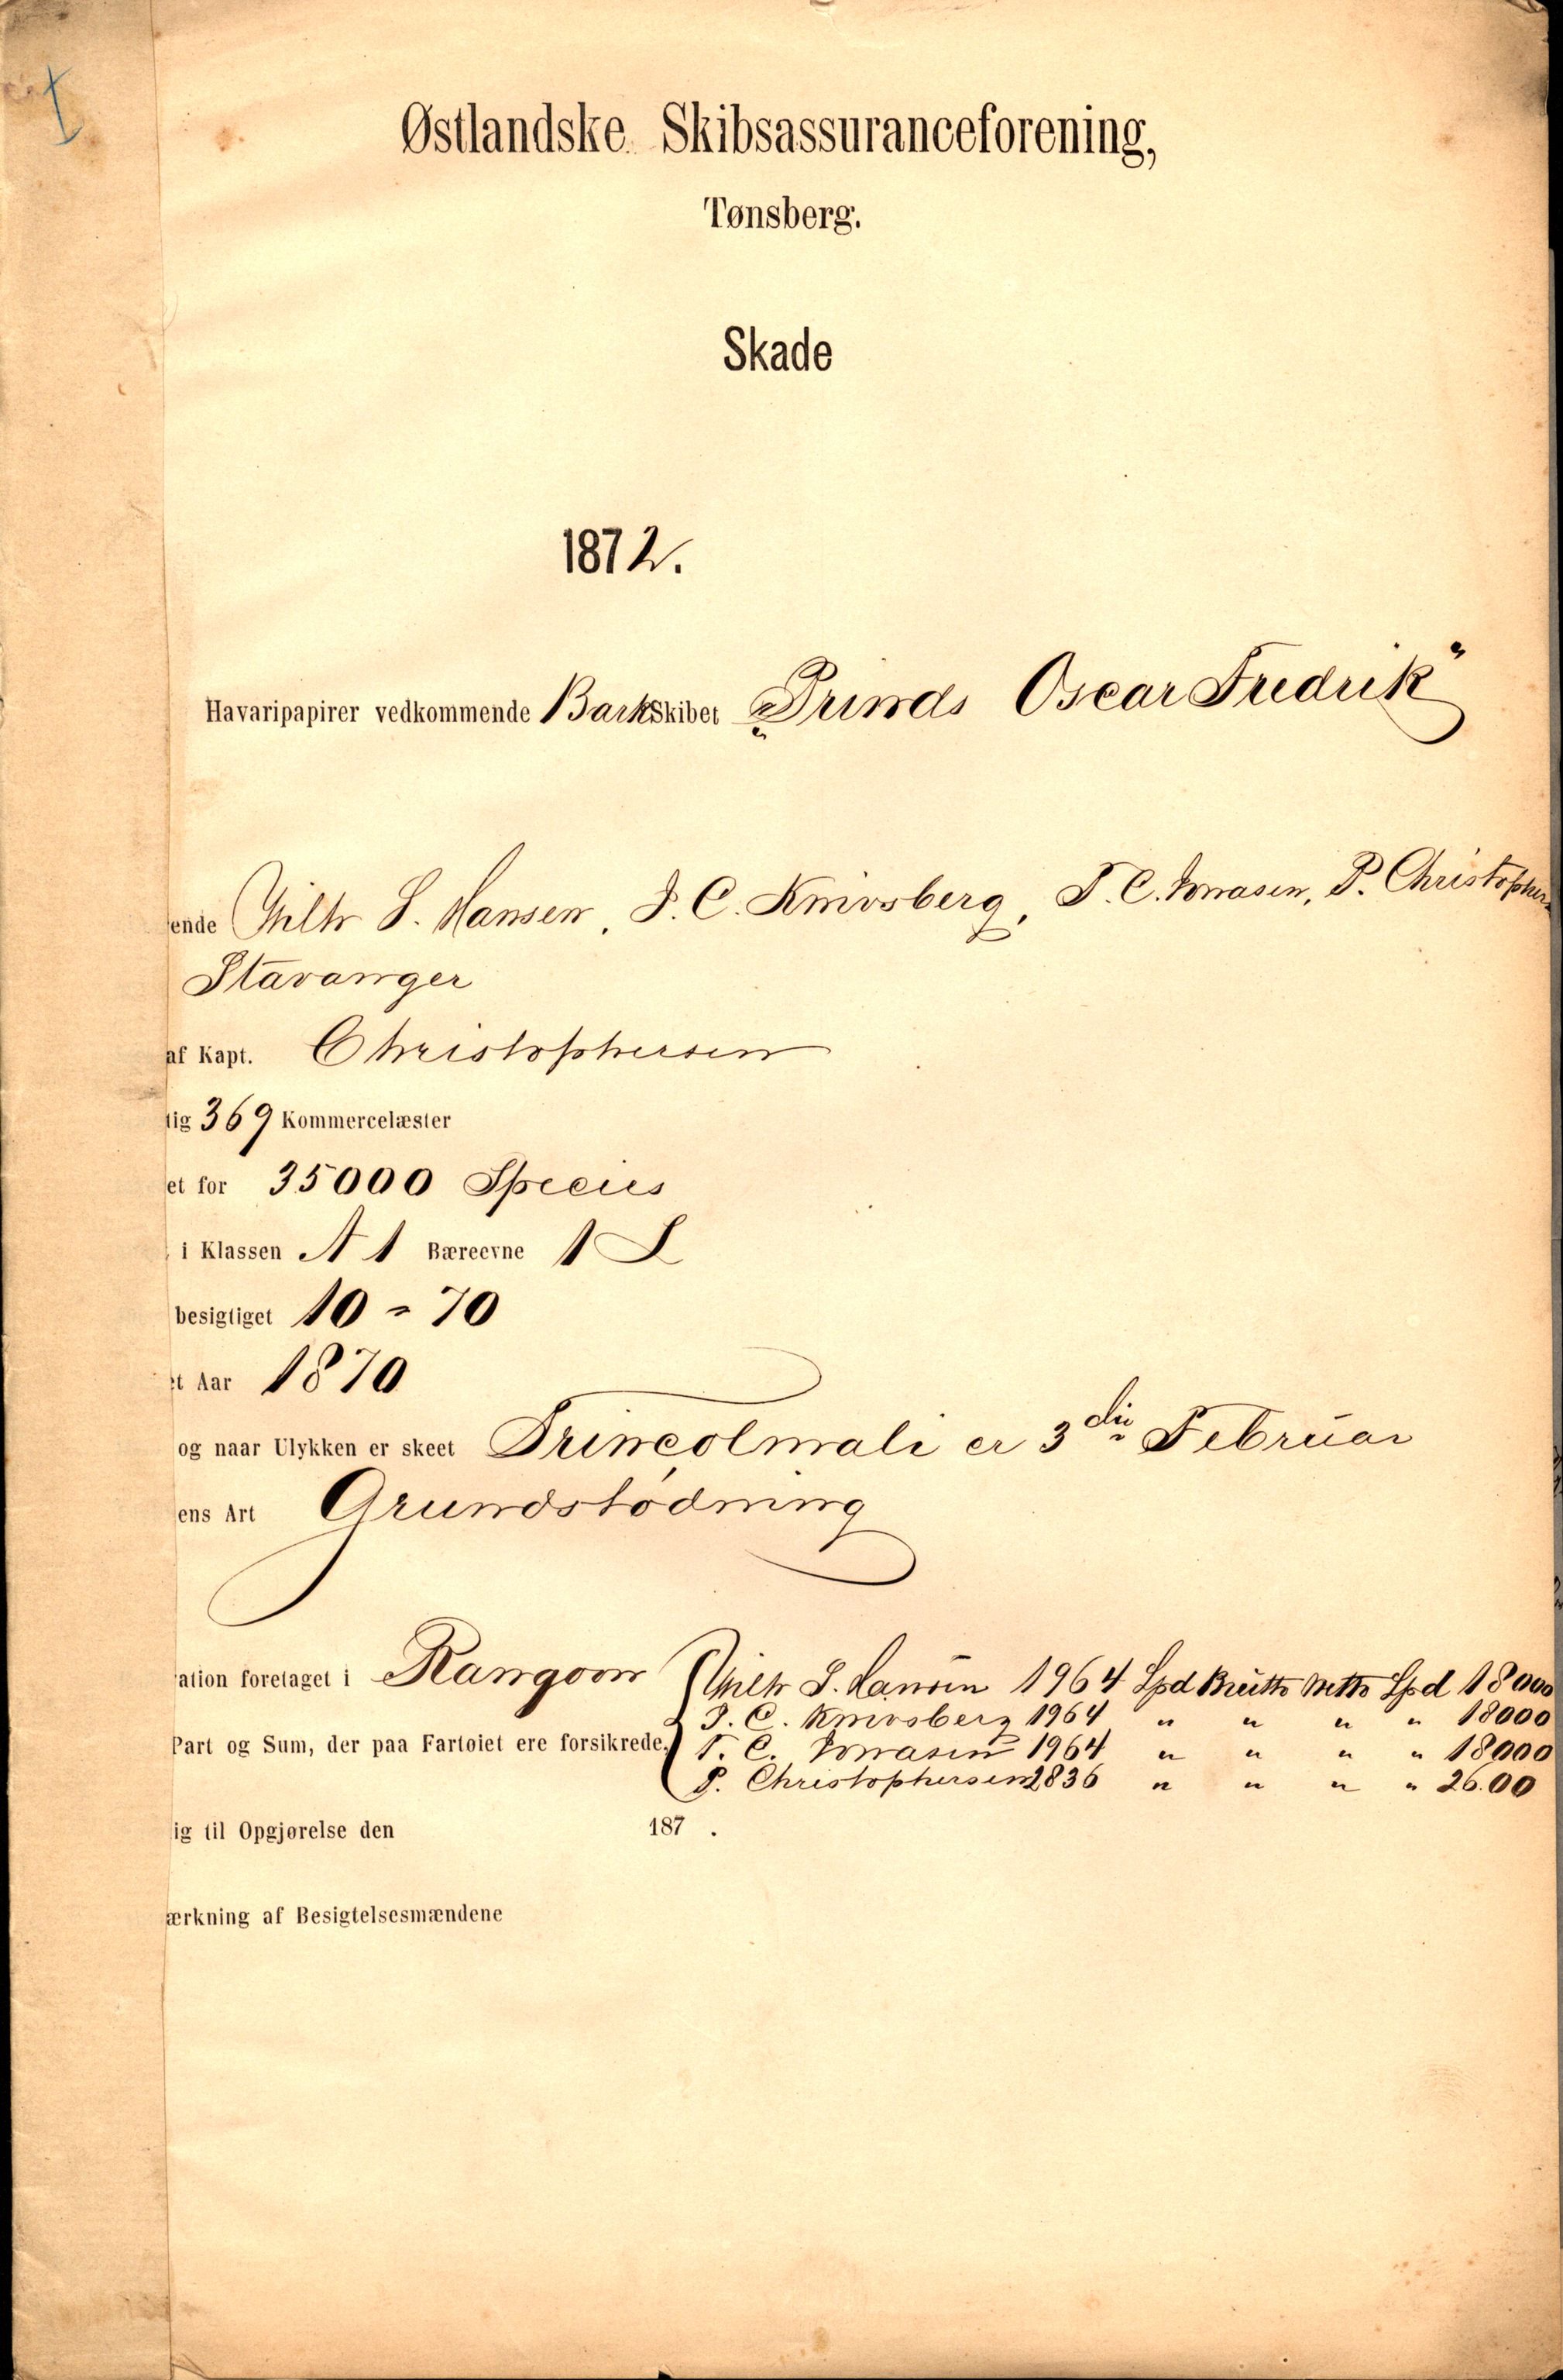 Østlandske Skibsassuranceforening,
Tønsberg.
Skade
1872.
Havaripapirer vedkommende Barkskibet „Prinds Oscar Fredrik"
ende Wilh S. Hansen, I. C. Knivsberg, T. C. Jonasen, P. Christophers
Stavanger
af Kapt. Christophersen
tig 369 Kommercelæster
et for 35000 Species
i Klassen A 1 Bæreevne 1 L
besigtiget 10 = 70
et Aar 1870
og naar Ulykken er skeet Trincolmali er 3die Februar
ens Art Grundstødning
ation foretaget i Rangoon
Part og Sum, der paa Fartøiet ere forsikrede.
Wilh S. Hansen 1964 Spd Brutto Netto Spd 18000
I. C. Knivsberg 1964 " " " " 18000
T. C. Jonasen 1964 " " " " 18000
P. Christophersen 2836 " " " " 26.00
ig til Opgjørelse den 187 .
ærkning af Besigtelsesmændene